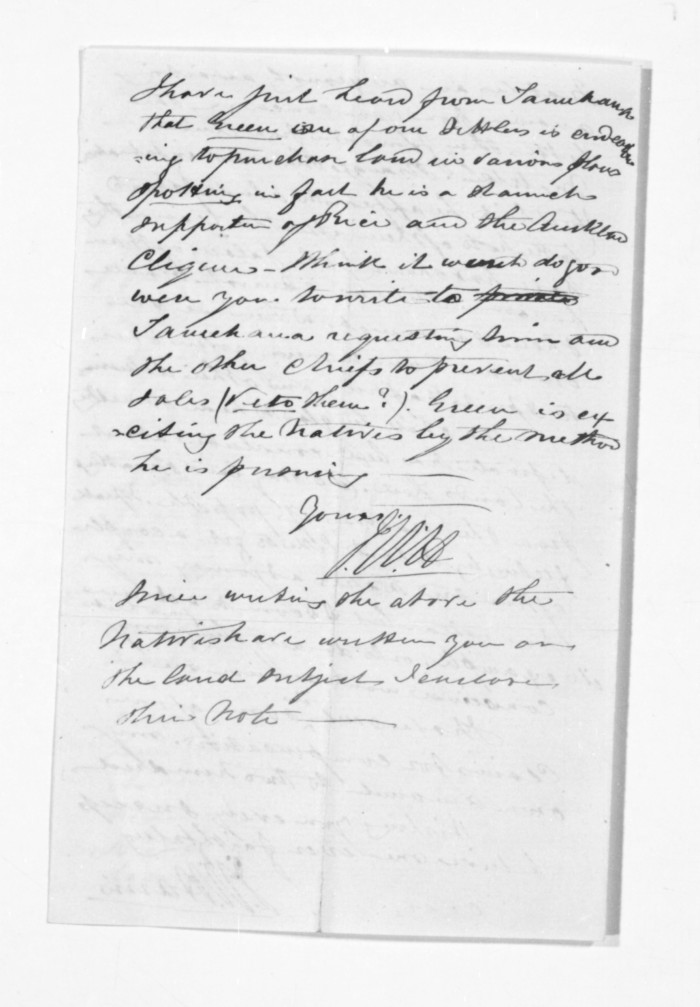 I have just heard from Tamehana
that Green one of our Settlers is endeavor
=ing to purchase land in various
in fact he is a staunch
supporter of and the Auckland
Clique - I think it would do good
were you to write to private
Tamehana requesting him and
the other Chiefs to prevent all
sales (Veto them?). Green is ex
=citing the Natives by the method
he is pursuing
Yours
Since writing the above the
Natives have written you on
the land subject I enclose
their Note